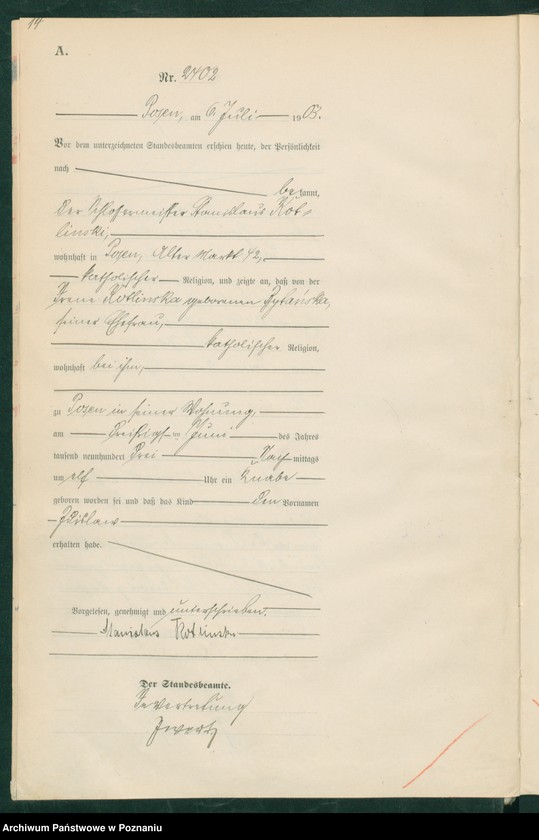 14
A.
Nr. 2702
Posen, am 6. Juli 1903.
Vor dem unterzeichneten Standesbeamten erschien heute, der Persönlichkeit
nach
bekannt,
der Schlossermeister Stanislaus Kot-
linski,
wohnhaft in Posen, Alter Markt 42,
katholischer Religion, und zeigte an, daß von der
Irene Kotlinska geborenen
seiner Ehefrau,
katholischer Religion,
wohnhaft bei ihm,
zu Posen in seiner Wohnung,
am dreißigsten Juni des Jahres
tausend neunhundert drei Nachmittags
um elf Uhr ein Knabe
geboren worden sei und daß das Kind den Vornamen
Zdislaw
erhalten habe.
Vorgelesen, genehmigt und unterschrieben.
Stanislaus Kotlinski
Der Standesbeamte.
In Vertretung
Archiwum Państwowe w Poznaniu